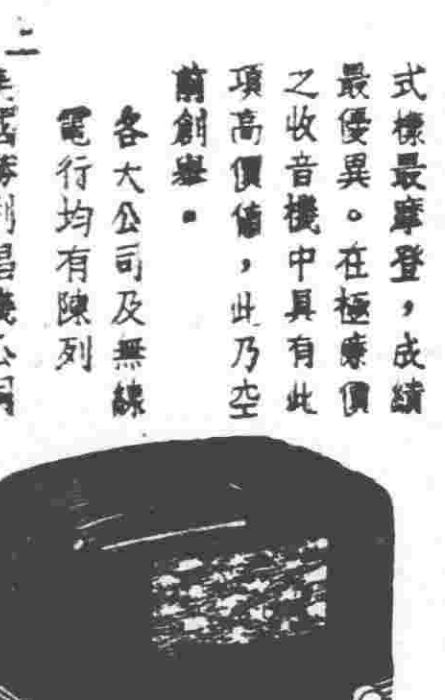 式樣最摩登，成績
最優異。在極廉價
之收音機中具有此
項高價值，此乃空
前創舉。
各大公司及無線
電行均有陳列
二
勝利唱機公司